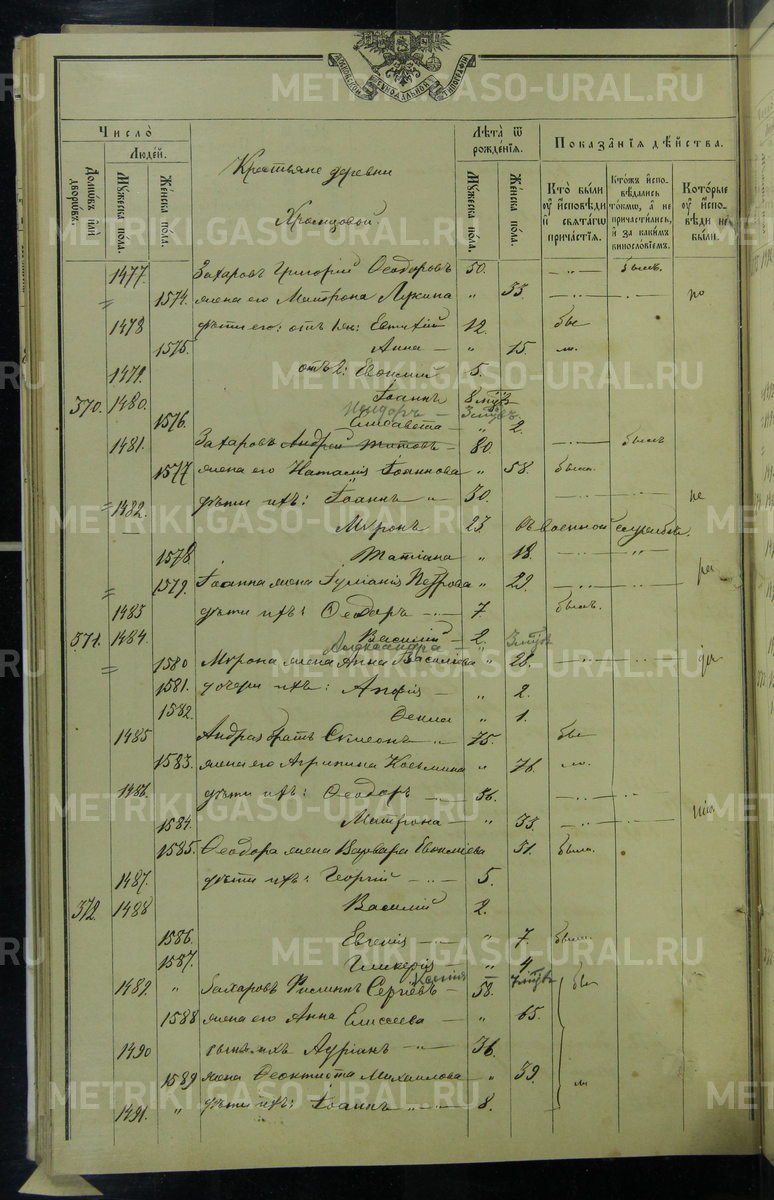 МОСКОВСКОЙ СУНОДАЛЬНОЙ ТИПОГРАФІИ
METRIKI.GASO-URAL.RU
Число̀
Людей.
Домѡвъ или дворѡвъ.
Мꙋжеска пола.
Женска пола.
Крестьяне деревни
Лѣта ѿ рожденїя.
Мꙋжеска пола.
Женска пола.
Показанїя дѣйства.
Кто были оу исповѣди и свѧтагѡ причастїѧ.
Ктожъ исповѣдались токмѡ, а не причастились, и за какимъ винословїемъ.
Которые оу исповѣди не были.
1477. Захаровъ Григорій Ѳеодоровъ 50. былъ.
1574. жена его Матрона Лукина " 55. но
1478 дѣти его: отъ 1 ж: Евтихій 12. бы
1575. Анна — " 15. ли.
1479. отъ 2: Евѳимій 5.
370. 1480. Іоаннъ 8 мцъ
1576. Елисавета — " 2.
1481. Захаровъ Андрей Титовъ — 80. былъ
1577 жена его Наталія Іоаннова " 58. была.
1482. дѣти ихъ: Іоаннъ " 30. не
Миронъ " 23. въ военной службѣ.
1578. Татіана " 18.
1579. Іоанна жена Іуліанія Петрова " 29.
1483 дѣти ихъ: Ѳеодоръ 7. былъ.
371. 1484. Василій — 2.
Александра
1580 Мирона жена Анна Василіева " 28.
1581. дочери ихъ: " 2.
1582. Ѳекла " 1.
1485 Андрея братъ Симеонъ " 75. бы
1583. жена его Агрипина Косьмина " 76. ли.
1486. дѣти ихъ: Ѳеодоръ 56.
1584. Матрона — " 33.
1585. Ѳеодора жена Варвара Евѳиміева 51. была.
1487. дѣти ихъ: Георгій 5.
372. 1488 Василій 2.
1586. Евгенія " 7. была.
1587. Гликерія " 4
Ксенія 7 мцвъ
1489. " Захаровъ Филиппъ Сергіевъ — 58. бы
1588 жена его Анна Елисеева — " 65.
1490 сынъ ихъ Адріанъ " 36.
1589 жена Ѳеоктиста Михайлова " 39. ли
1491. " дѣти ихъ: Іоаннъ " 8.